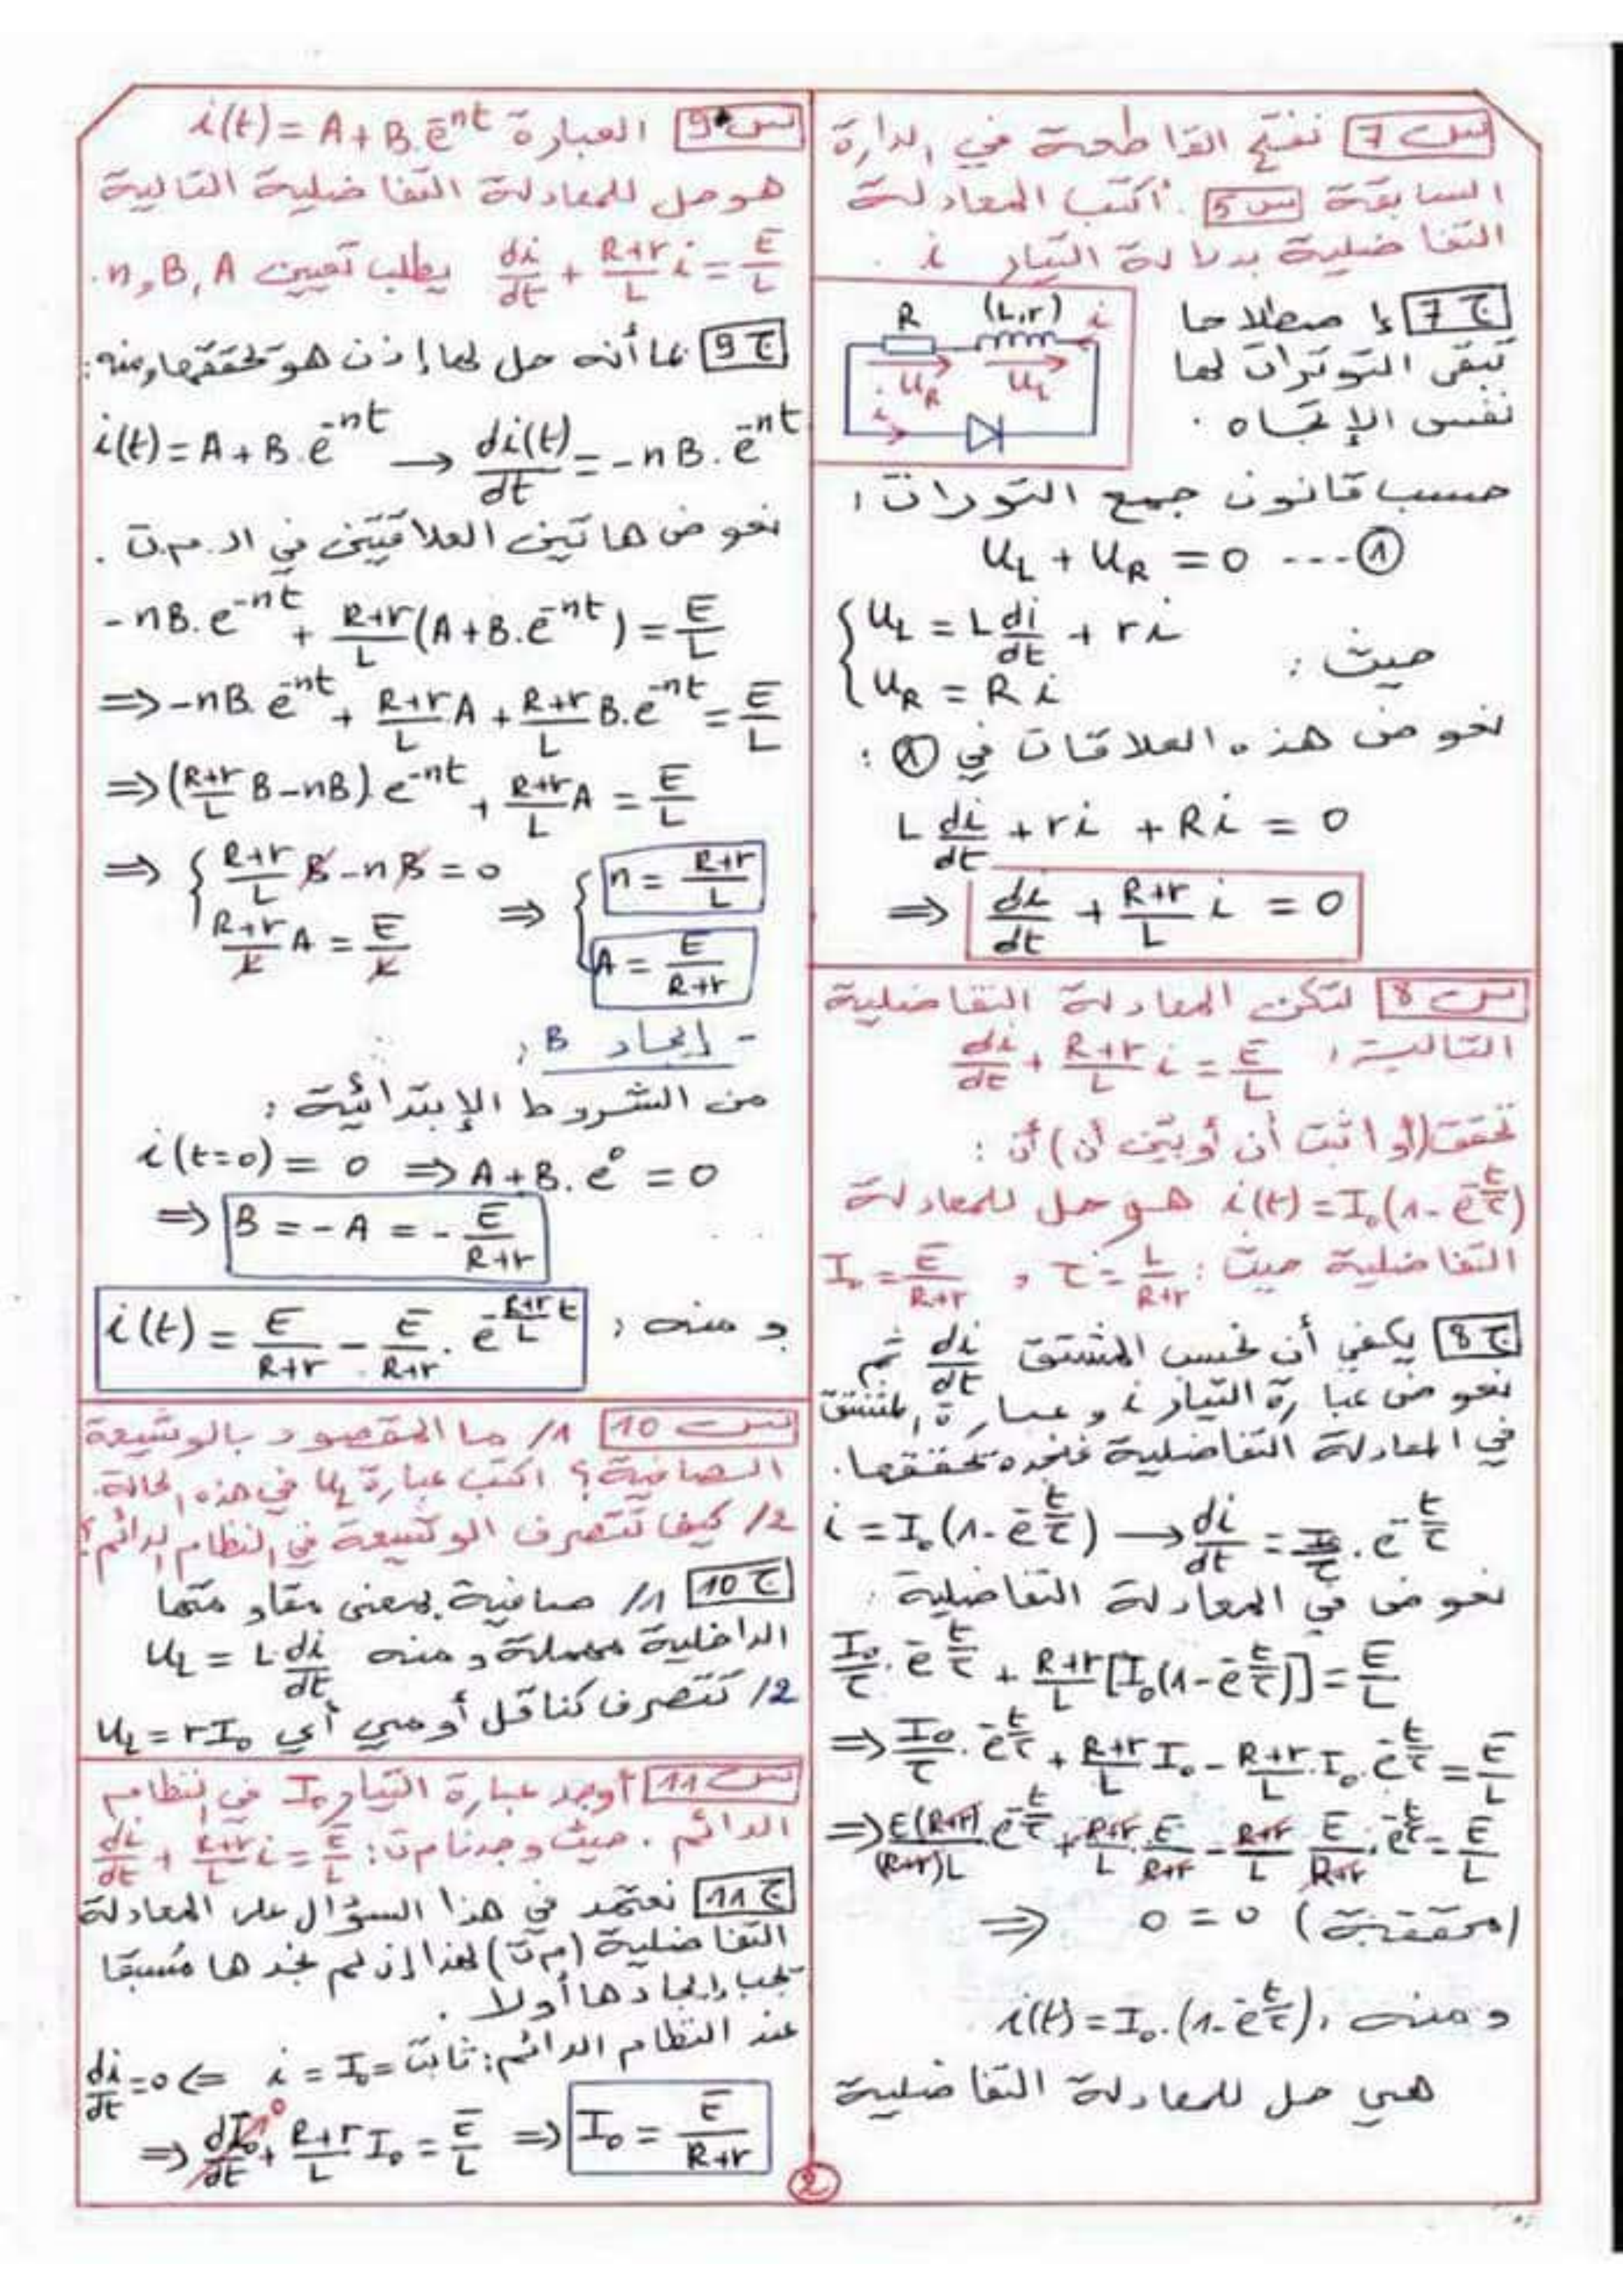 س 7 نفتح القاطعة في الدارة
السابقة س 5 . أكتب المعادلة
التفاضلية بدلالة التيار i .
ج 7 إصطلاحا
تبقى التوترات لها
نفس الإتجاه .
R (L,r) i
U_R U_L
i
حسب قانون جمع التوترات :
U_L + U_R = 0 ---- ①
حيث : { U_L = L di/dt + r i
U_R = R i
نعوض هذه العلاقات في ① :
L di/dt + r i + R i = 0
⇒ di/dt + (R+r)/L i = 0
س 8 لتكن المعادلة التفاضلية
التالية : di/dt + (R+r)/L i = E/L
تحقق (أو اثبت أن أو بيّن أن) أن :
i(t) = I₀(1 - e^(-t/τ)) هو حل للمعادلة
التفاضلية حيث : τ = L/(R+r) و I₀ = E/(R+r)
ج 8 يكفي أن نحسب المشتق di/dt ثم
نعوض عبارة التيار i وعبارة المشتق
في المعادلة التفاضلية فنجده تحققها.
i = I₀(1 - e^(-t/τ)) → di/dt = I₀/τ . e^(-t/τ)
نعوض في المعادلة التفاضلية :
I₀/τ . e^(-t/τ) + (R+r)/L [I₀(1 - e^(-t/τ))] = E/L
⇒ I₀/τ . e^(-t/τ) + (R+r)/L I₀ - (R+r)/L . I₀ . e^(-t/τ) = E/L
⇒ E(R+r)/(R+r)L . e^(-t/τ) + (R+r)/L . E/(R+r) - (R+r)/L E/(R+r) . e^(-t/τ) = E/L
⇒ 0 = 0 (محققة)
ومنه : i(t) = I₀.(1 - e^(-t/τ))
هي حل للمعادلة التفاضلية
س 9 العبارة i(t) = A + B.e^(-nt)
هو حل للمعادلة التفاضلية التالية
di/dt + (R+r)/L i = E/L يطلب تعيين A , B و n .
ج 9 بما أنه حل لها إذن هو تحققها ومنه :
i(t) = A + B.e^(-nt) → di(t)/dt = -nB.e^(-nt)
نعوض هاتين العلاقتين في الـ م.ت .
-nB.e^(-nt) + (R+r)/L (A + B.e^(-nt)) = E/L
⇒ -nB.e^(-nt) + (R+r)/L A + (R+r)/L B.e^(-nt) = E/L
⇒ ((R+r)/L B - nB).e^(-nt) + (R+r)/L A = E/L
⇒ { (R+r)/L B - nB = 0 ⇒ { n = (R+r)/L
(R+r)/L A = E/L A = E/(R+r)
- إيجاد B :
من الشروط الإبتدائية :
i(t=0) = 0 ⇒ A + B.e⁰ = 0
⇒ B = -A = - E/(R+r)
ومنه : i(t) = E/(R+r) - E/(R+r) . e^(-(R+r)/L t)
س 10 1/ ما المقصود بالوشيعة
الصافية؟ اكتب عبارة U_L في هذه الحالة.
2/ كيف تتصرف الوشيعة في النظام الدائم؟
ج 10 1/ صافية بمعنى مقاومتها
الداخلية مهملة ومنه U_L = L.di/dt
2/ تتصرف كناقل أومي أي U_L = rI₀
س 11 أوجد عبارة التيار I₀ في النظام
الدائم . حيث وجدنا م ت : di/dt + (R+r)/L i = E/L
ج 11 نعتمد في هذا السؤال على المعادلة
التفاضلية (م ت) لهذا إن لم نجدها مسبقا
يجب إيجادها أولا .
عند النظام الدائم : ثابت = i = I₀ ⇒ di/dt = 0
⇒ dI₀/dt 0 + (R+r)/L I₀ = E/L ⇒ I₀ = E/(R+r)
2